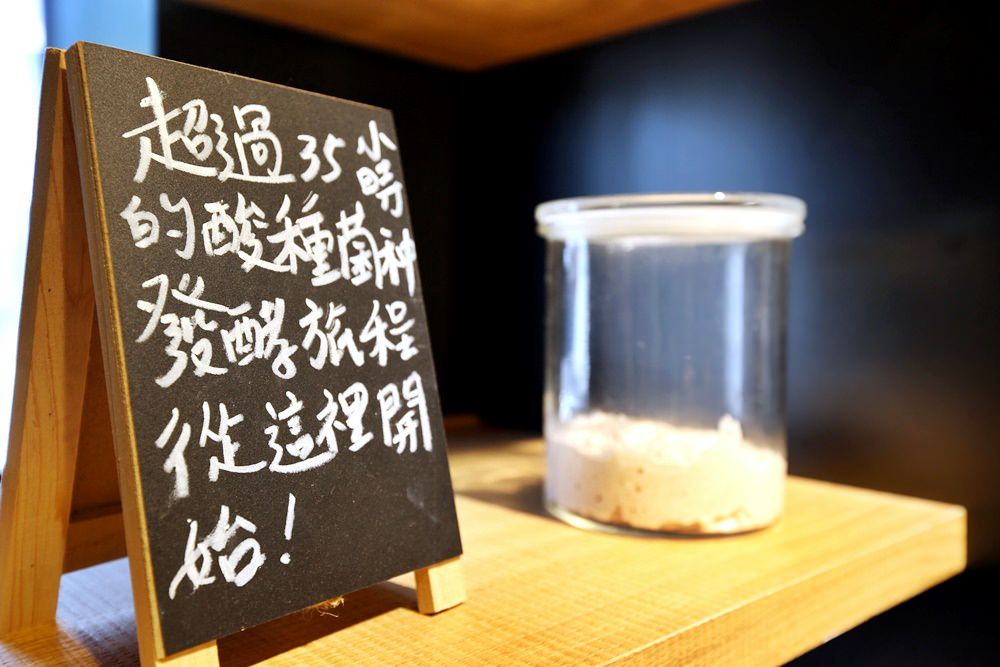 超過35小時
的酸種菌神
發酵旅程
從這裡開
始！